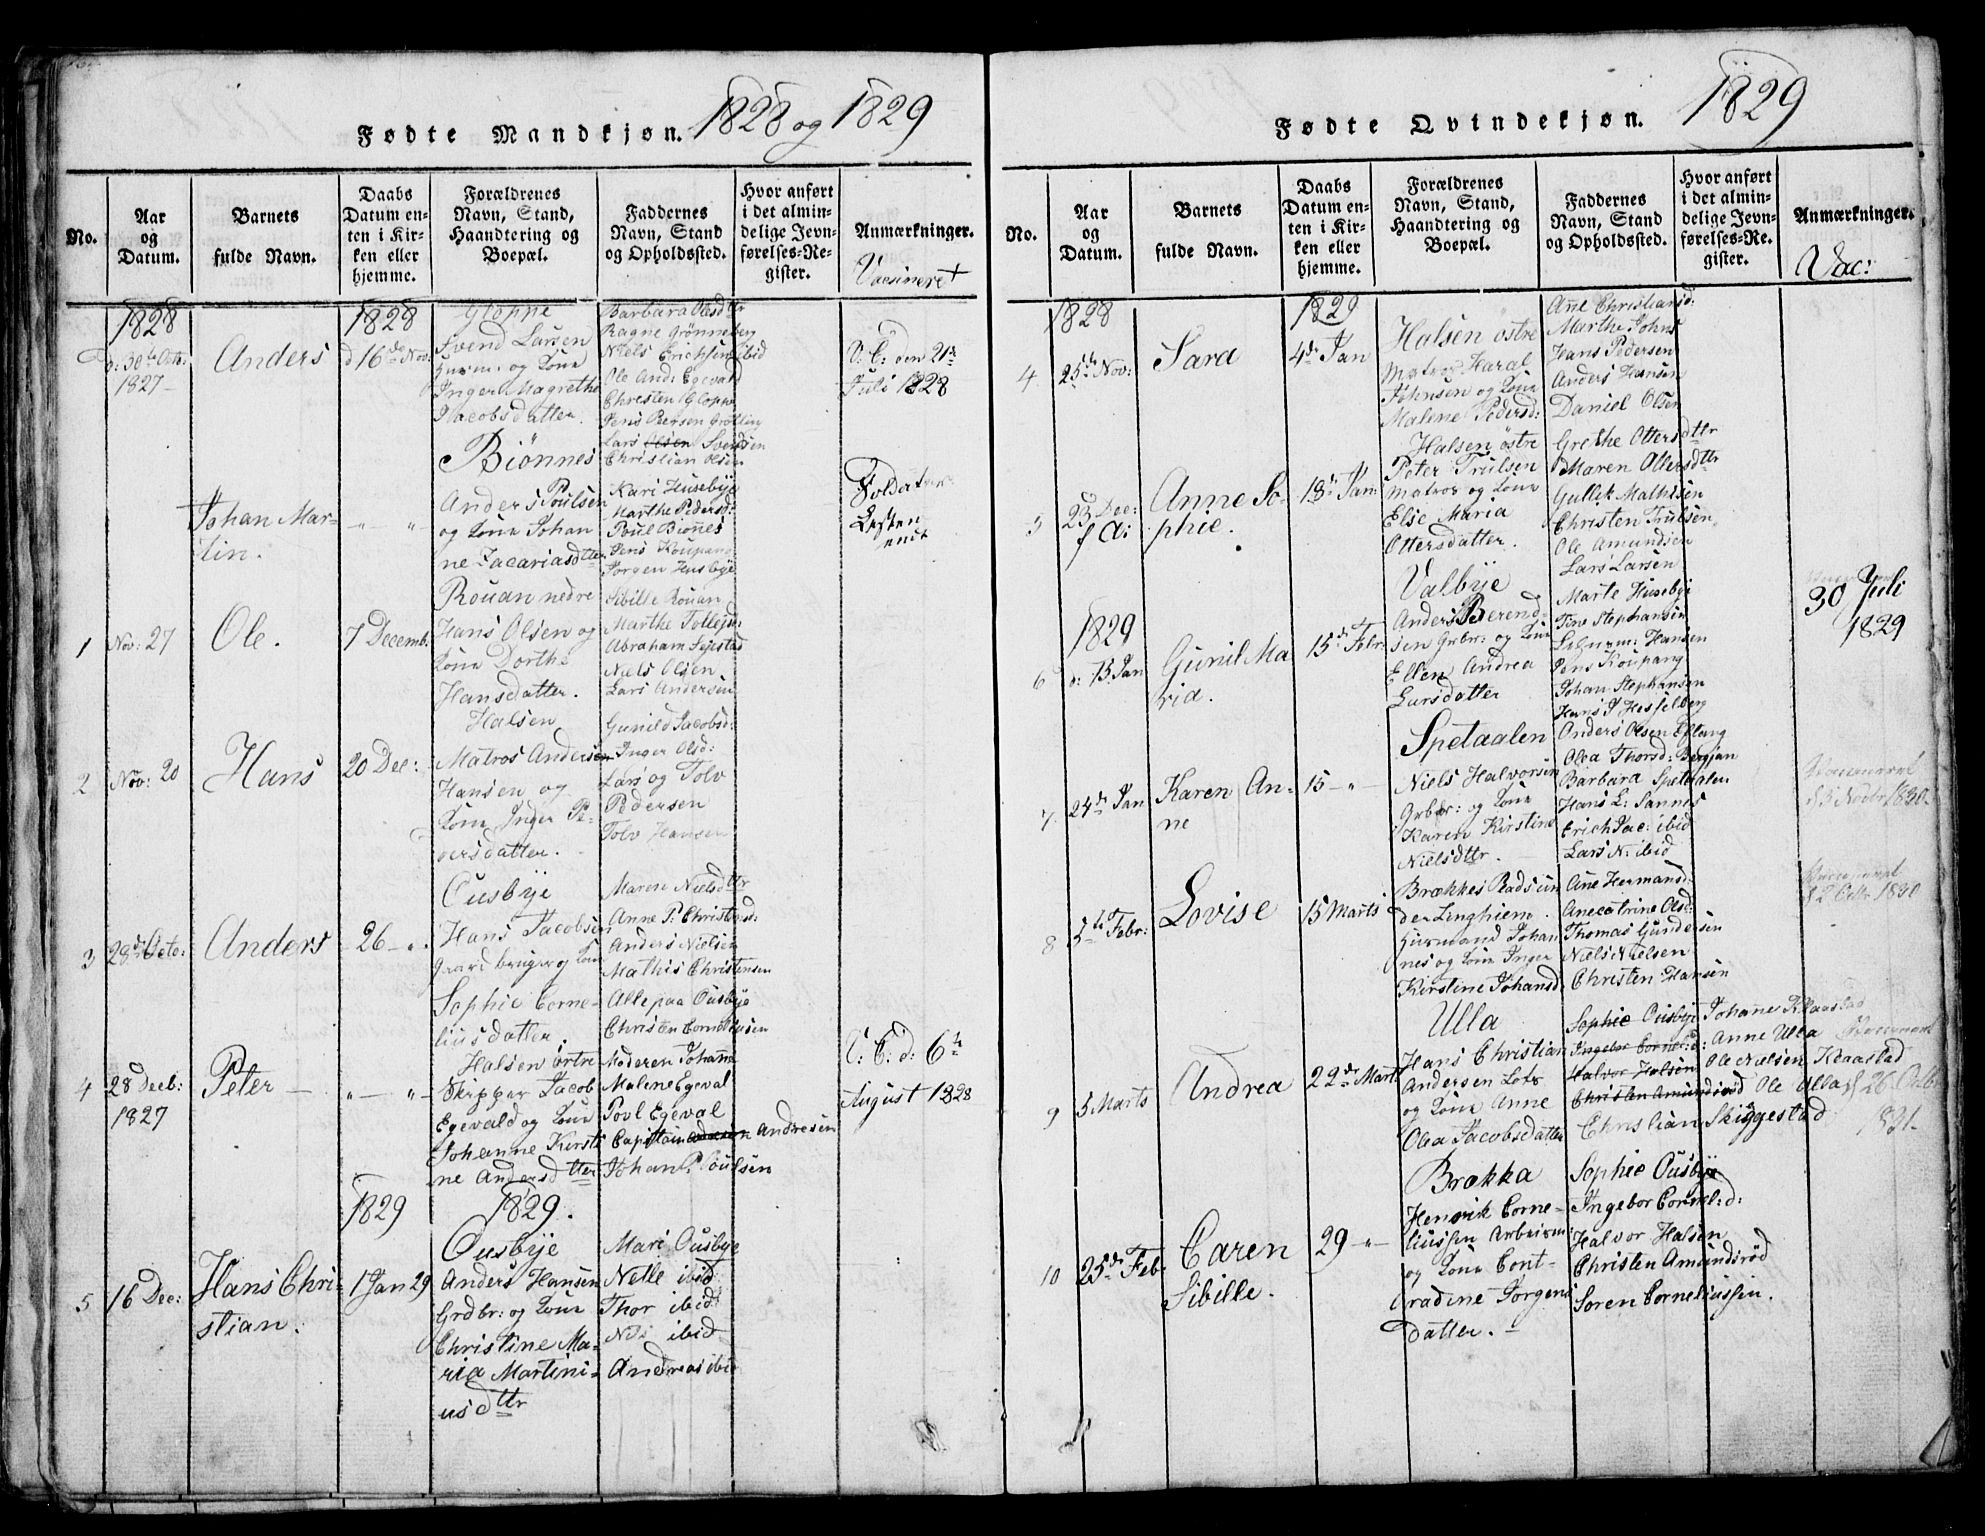 Fødte Mandkjøn. 1828 og 1829
No.
Aar og Datum.
Barnets fulde Navn.
Daabs Datum en-
ten i Kir-
ken eller
hjemme.
Forældrenes
Navn, Stand,
Haandtering og
Boepæl.
Faddernes
Navn, Stand
og Opholdssted.
Hvor anført
i det almin-
delige Jevn-
førelses-Re-
gister.
Anmærkninger.
Vacsineret
1828
d: 30te Octb:
1827
Anders
1828
d 16de Nov:
Gloppe
Svend Larsen
Huusm: og Kone
Inger Magrethe
Jacobsdatter.
Barbara Olsdttr
Ragne Grønneberg
Niels Erichsen ibid
Ole And: Egevald
Christen Gloppe
Jens Bersen Grøtting
Lars Olsen Svendsen
Christian Olsen
den 21de
Juli 1828
Johan Mar-
tin.
" "
Biönnes
Anders Poulsen
og Kone Johan
ne Zacariasdtter
Kari Huusebye
Marthe Pedersd:
Poul Biønes
Jens Koupang
Jørgen Husbye
Soldater
1
Nov: 27
Ole.
7 Decemb.
Rouan nedre
Hans Olsen og
Kone Dorthe
Hansdatter.
Sibille Rouan
Marthe Tollefsd:
Abraham Sejestad
Niels Olsen
Lars Andersen
2
Nov: 20
Hans
20 Dec:
Halsen
Matros Andersen
Hansen og
Kone Inger Pe-
dersdatter.
Gunild Jacobsd:
Inger Olsd:
Lars og Tolv
Pedersen
Tolv Hansen
3
28de Octo:
Anders
- 26 - ".
Ousbye
Hans Jacobsen
Gaardbruger og Kone
Sophie Corne-
liusdatter.
Maren Nielsdttr
Anne P: Christensd:
Anders Nielsen
Mathis Christensen
Alle paa Ousbye
Christen Corneliusen
4
28 Decb:
1827
Peter -
" - "
Halsen östre
Skipper Jacob
Egevald og Kone
Johanne Kirsti
ne Andersdtter
Moderen Johanne
Malene Egeval
Povl Egeval
Capitain Andresen
Johan Poulsen
d: 6te
August 1828
1829
1829.
5
16 Dec:
Hans Chri-
stian.
1 Jan 29
Ousbye
Anders Hansen
Grdbr: og Kone
Christine Ma-
ria Martini-
usdttr
Mari Ousbye
Nelle ibid
Thor ibid
Nils ibid
Andreas ibid
Fødte Qvindekjøn. 1829
No.
Aar
og
Datum.
Barnets
fulde Navn.
Daabs
Datum en-
ten i Kir-
ken eller
hjemme.
Forældrenes
Navn, Stand,
Haandtering og
Boepæl.
Faddernes
Navn, Stand
og Opholdssted.
Hvor anført
i det almin-
delige Jevn-
førelses-Re-
gister.
Anmærkninger.
Vac:
1828
1829
4
25de Nov:
Sara
4de Jan
Halsen östre
Matros Haral
Johnsen og Kone
Malene Pedersd:
Ane Christiansd:
Marthe Johns
Hans Pedersen
Anders Hansen
Daniel Olsen
5
23 Dec:
f A:
Anne So-
phie.
18de Jan:
Halsen östre
Peter Trulsen
Matros og Kone
Else Maria
Ottersdatter.
Grethe Ottersdttr
Maren Ollersdttr
Gullik Mathisen
Christen Trulsen
Ole Amundsen
Lars Larsen
1829
6
d: 13 Jan
Gunil Ma
ria.
15de Febr:
Valbye
Anders Berend-
sen Grbr: og Kone
Ellen Andrea
Larsdatter
Marte Husebye
Tine Stephansen
Hansen
Jens Koupang
Johan Stephansen
Hans J Hesselberg
30 Juli
1829
7
24de Jan
Karen An-
ne
15 - " -
Spetaalen
Niels Halvorsen
Grbr: og Kone
Karen Kirstine
Nielsdttr.
Anders Olsen Eftang
Olea Thorsd: Bergan
Barbara Spetaalen
Hans L: Sannes
Erich Jac: ibid
Lars N: ibid
Vaccineret
1830.
8
5te Febr:
Lovise
15 Marts
Brækkes Pladsun
der Linghiem.
Huusmand Johan
nes og Kone Inger
Kirstine Johansd:
Ane Hermansd:
Anecatrine Olsd:
Thomas Gundersen
Niels Nielsen
Christen Hansen
Vaccineret
d 2 Octr 1830
9
5 Marts
Andrea
22de Marts
Ulla
Hans Christian
Andersen Lots
og Kone Anne
Olea Jacobsdatter
Sophie Ousbye Johanne Klaastad
Ingebor Cornel:d: Anne Ulla
Halvor Halsen Ole Nielsen Klaastad
Christen Amundsrød Ole Ulla
Christian Skiggestad
26 Octbr
1831
10
25de Feb:
Caren
Sibille.
29 - "
Brækka
Henrik Corne-
liussen Arbeidsm:
og Kone Cont-
radine Jørgens
datter. -
Sophie Ousbye
Ingebor Cornel:d:
Halvor Halsen
Christen Amundsrød
Søren Corneliussen.